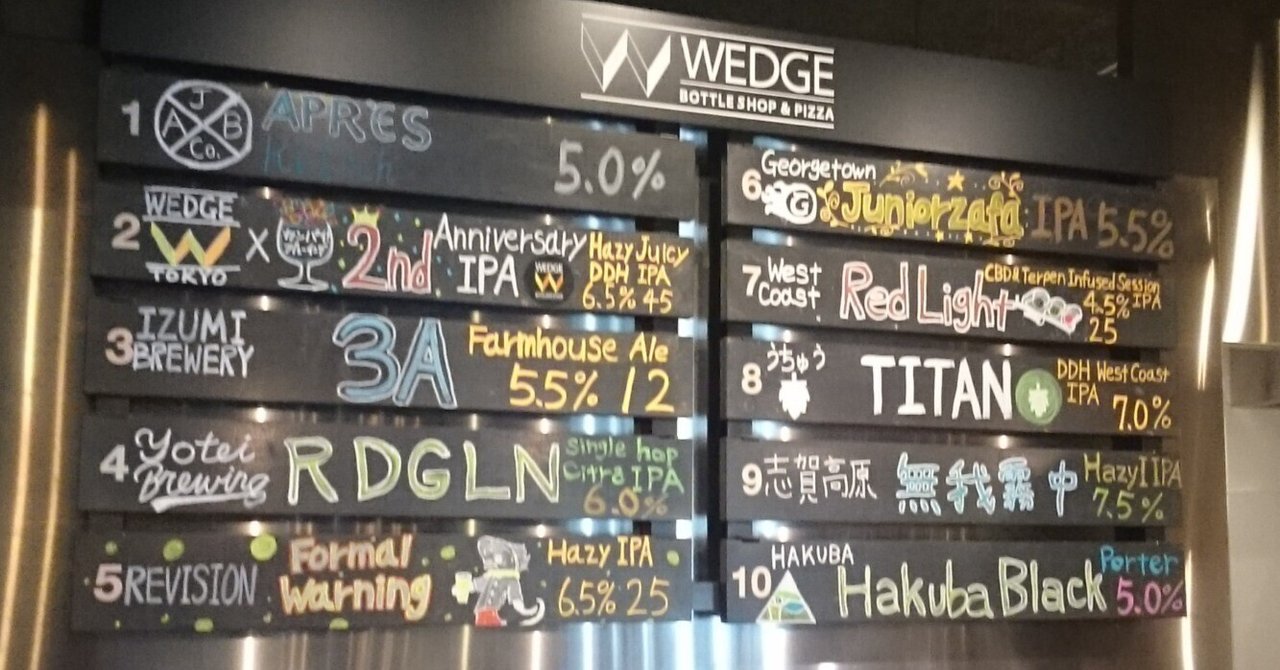 WEDGE
BOTTLE SHOP & PIZZA
1 J A B Co. APRES
5.0%
2 WEDGE TOKYO X 2nd Anniversary IPA WEDGE Hazy Juicy DDH IPA 6.5% 45
3 IZUMI BREWERY 3A Farmhouse Ale 5.5% 12
4 Yotei Brewing RDGLN Single hop Citra IPA 6.0%
5 REVISION Formal Warning Hazy IPA 6.5% 25
6 Georgetown G Juniorzafa IPA 5.5%
7 West Coast Red Light CBD & Terpen Infused Session IPA 4.5% 25
8 うちゅう TITAN DDH West Coast IPA 7.0%
9 志賀高原 無我霧中 Hazy IIPA 7.5%
10 HAKUBA Hakuba Black Porter 5.0%